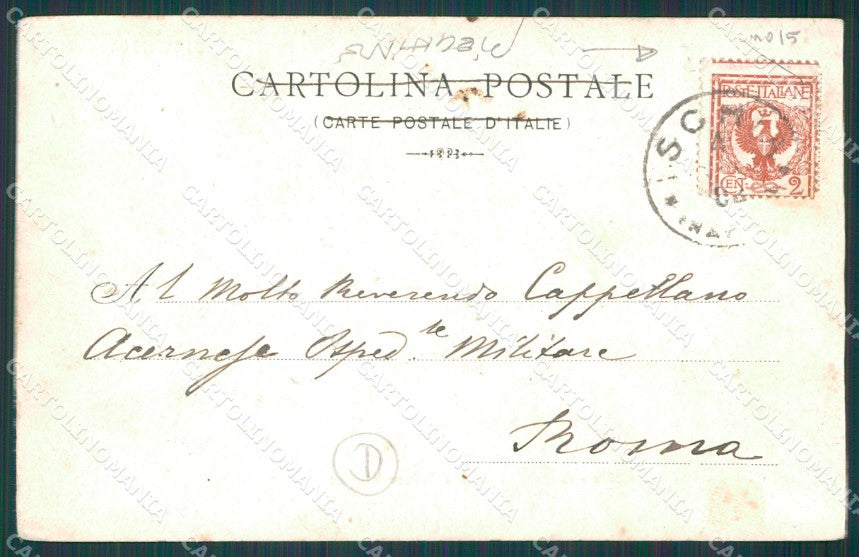 CARTOLINA POSTALE
(CARTE POSTALE D'ITALIE)
POSTE ITALIANE
CEN. 2
Al Molto Reverendo Cappellano
Acernese Osped.le Militare
Roma
D
CARTOLINOMANIA